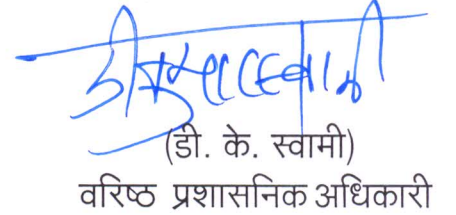 (डी. के. स्वामी)
वरिष्ठ प्रशासनिक अधिकारी